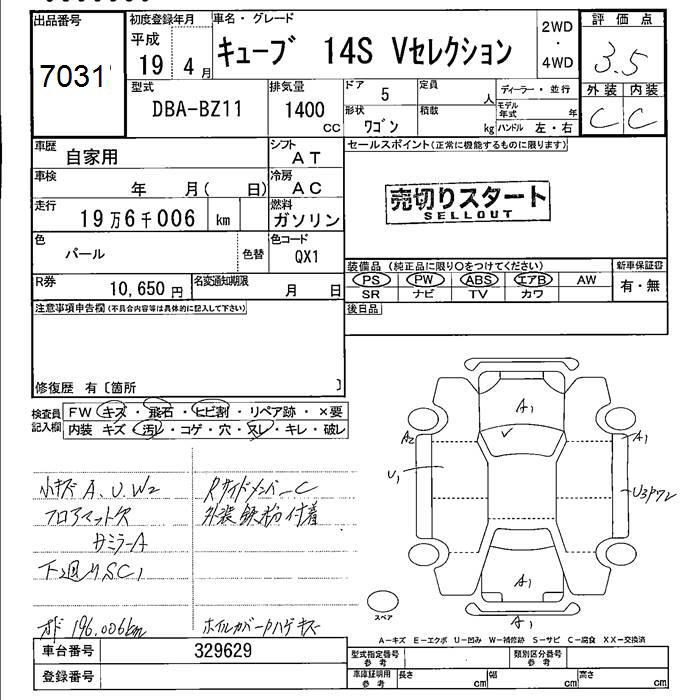 出品番号
7031
初度登録年月
平成
19 4 月
車名・グレード
キューブ 14S Vセレクション
2WD
・
4WD
評価点
3.5
外装 内装
C C
型式
DBA-BZ11
排気量
1400
CC
ドア
5
形状
ワゴン
定員
人
積載
kg
ディーラー・並行
モデル年式 年
ハンドル 左・右
車歴
自家用
シフト
AT
車検
年 月( 日)
冷房
AC
走行
19万6千006 km
燃料
ガソリン
色
パール
色替
色コード
QX1
R券
10,650 円
名変通知期限
月 日
セールスポイント(正常に機能するものに限ります)
売切りスタート
SELLOUT
装備品 (純正品に限り○をつけてください)
PS PW ABS エアB AW
SR ナビ TV カワ
新車保証書
有・無
後日品
注意事項申告欄(不具合内容等は具体的に記入して下さい)
修復歴 有〔箇所 〕
検査員記入欄
FW キズ・飛石・ヒビ割・リペア跡・×要
内装 キズ・汚レ・コゲ・穴・スレ・キレ・破レ
小キズ A、U、W2
フロアマット欠
サミラーA
下廻りSC1
オド 196,006km
RサイドメンバーC
外装 鉄粉付着
ホイルカバーハゲキズ
A1
A2
A1
U1
A1
A1
スペア
A-キズ E-エクボ U-凹み W-補修跡 S-サビ C-腐食 XX-交換済
車台番号
329629
登録番号
型式指定番号
参考
類別区分番号
参考
車庫証明用
参考
長さ cm
幅 cm
高さ cm